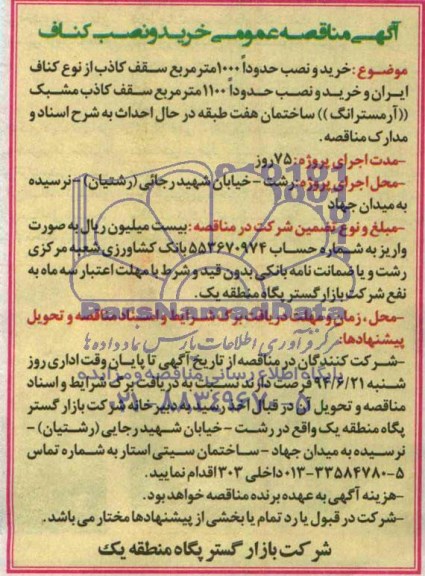 آگهی مناقصه عمومی خرید و نصب کناف
موضوع: خرید و نصب حدوداً ۱۰۰۰ متر مربع سقف کاذب از نوع کناف
ایران و خرید و نصب حدوداً ۱۱۰۰ متر مربع سقف کاذب مشبک
((آرمسترانگ)) ساختمان هفت طبقه در حال احداث به شرح اسناد و
مدارک مناقصه.
-مدت اجرای پروژه: ۷۵ روز
-محل اجرای پروژه: رشت - خیابان شهید رجائی (رشتیان) - نرسیده
به میدان جهاد
-مبلغ و نوع تضمین شرکت در مناقصه: بیست میلیون ریال به صورت
واریز به شماره حساب ۵۵۳۶۷۰۹۷۴ بانک کشاورزی شعبه مرکزی
رشت و یا ضمانت نامه بانکی بدون قید و شرط با مهلت اعتبار سه ماه به
نفع شرکت بازار گستر پگاه منطقه یک.
-محل، زمان و مهلت دریافت برگ شرایط و اسناد مناقصه و تحویل
پیشنهادها:
-شرکت کنندگان در مناقصه از تاریخ آگهی تا پایان وقت اداری روز
شنبه ۹۴/۶/۲۱ فرصت دارند نسبت به دریافت برگ شرایط و اسناد
مناقصه و تحویل آن در قبال اخذ رسید به دبیرخانه شرکت بازار گستر
پگاه منطقه یک واقع در رشت - خیابان شهید رجایی (رشتیان) -
نرسیده به میدان جهاد - ساختمان سیتی استار به شماره تماس
۵-۰۱۳-۳۳۵۸۴۷۸۰ داخلی ۳۰۳ اقدام نمایند.
-هزینه آگهی به عهده برنده مناقصه خواهد بود.
-شرکت در قبول یا رد تمام یا بخشی از پیشنهادها مختار می باشد.
شرکت بازار گستر پگاه منطقه یک
ParsNamadData
مرکز فرآوری اطلاعات پارس نماد داده ها
پایگاه اطلاع رسانی مناقصه و مزایده
۰۲۱-۸۸۳۴۹۶۷۰-۵